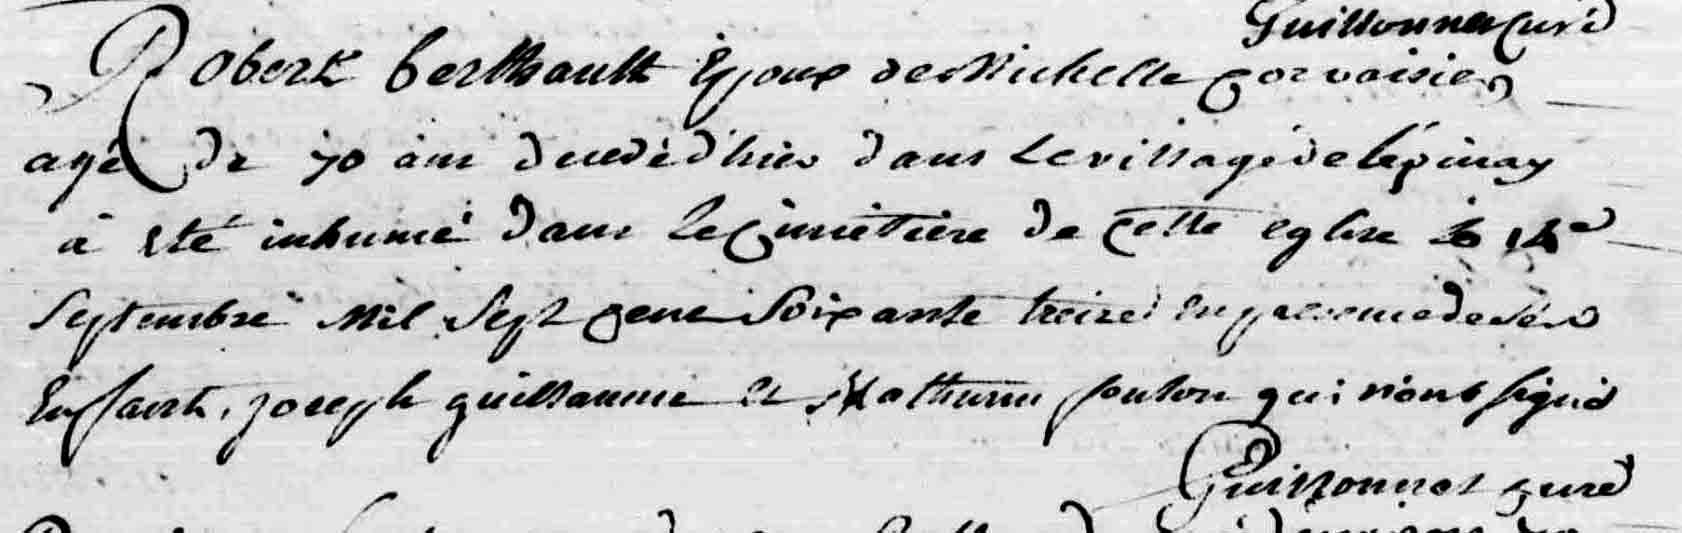 Guillonnet curé
Robert berthault Epoux de Michelle gorvaisier
agé de 70 ans decedé d'hier dans le village de lépinay
à eté inhumé dans le cimetière de cette eglise le 14e
Septembre Mil Sept cent Soixante treize en presence de ses
Enfants, joseph guillaume et Mathurin foulon qui n'ont signé
Guillonnet curé